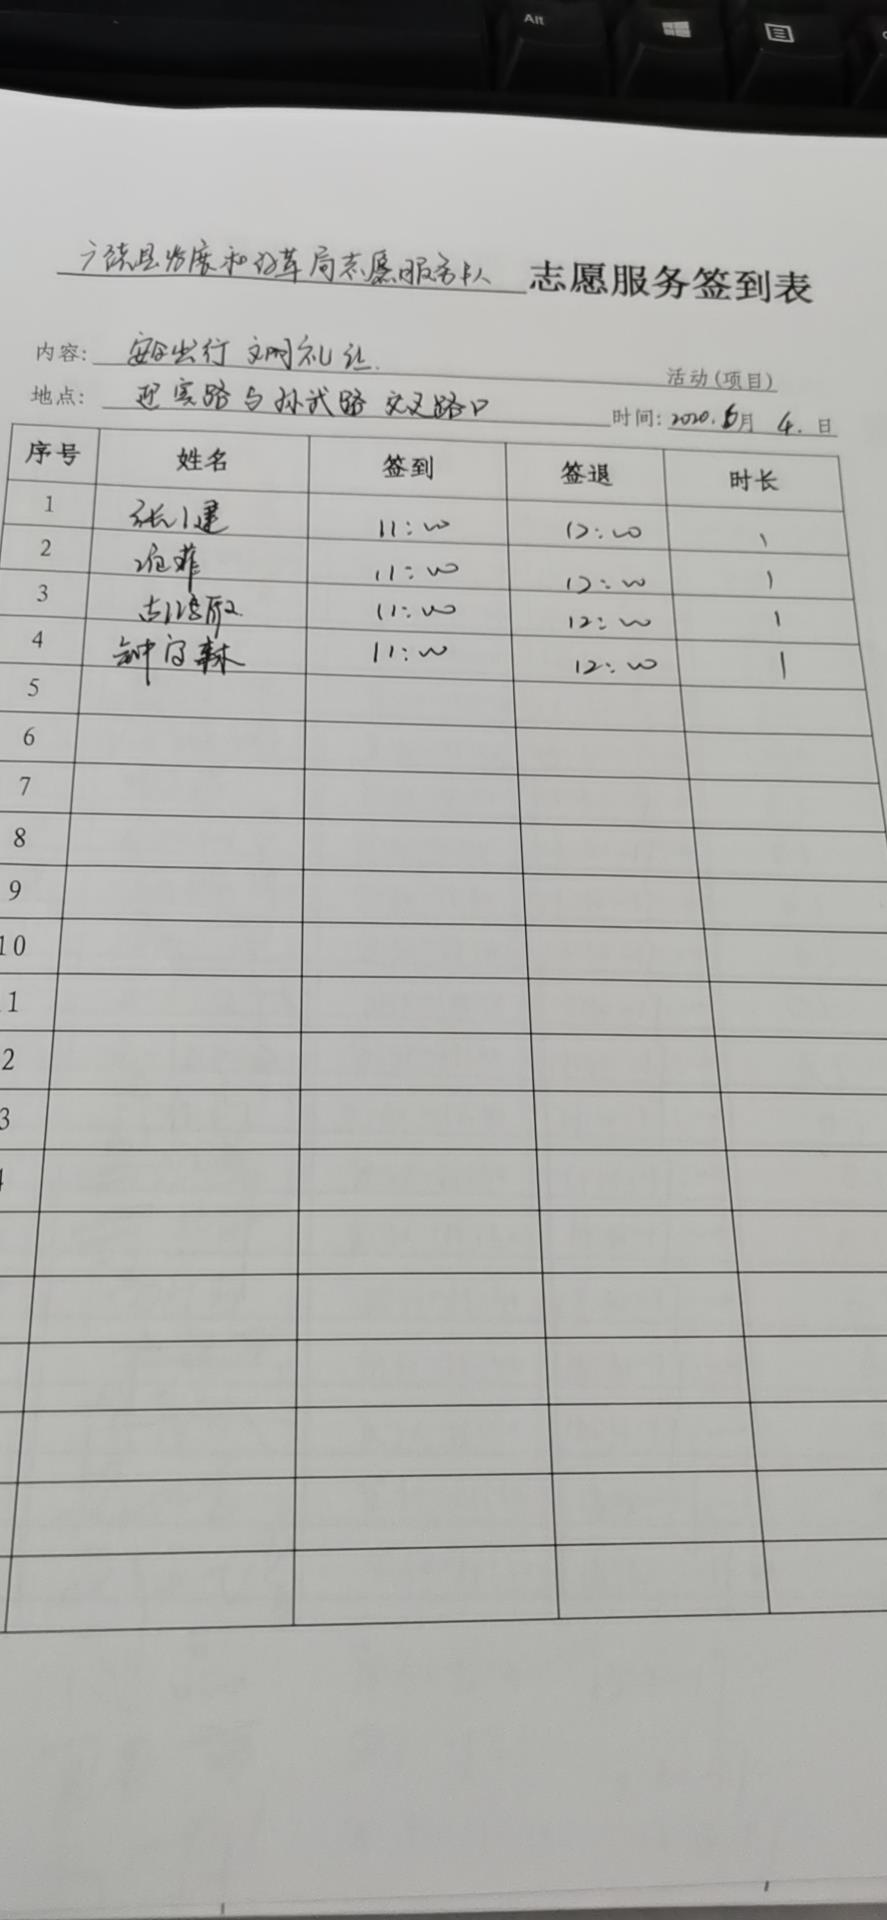 Alt
广饶县发展和改革局志愿服务队 志愿服务签到表
内容: 安全出行 文明礼让. 活动(项目)
地点: 迎宾路与孙武路交叉路口 时间: 2020.6月4.日
序号 姓名 签到 签退 时长
1 张建 11:00 12:00 1
2 11:00 12:00 1
3 11:00 12:00 1
4 钟 11:00 12:00 1
5
6
7
8
9
10
1
2
3
4